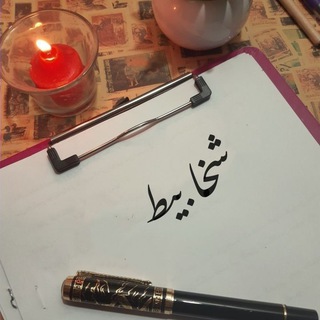 شخابيط